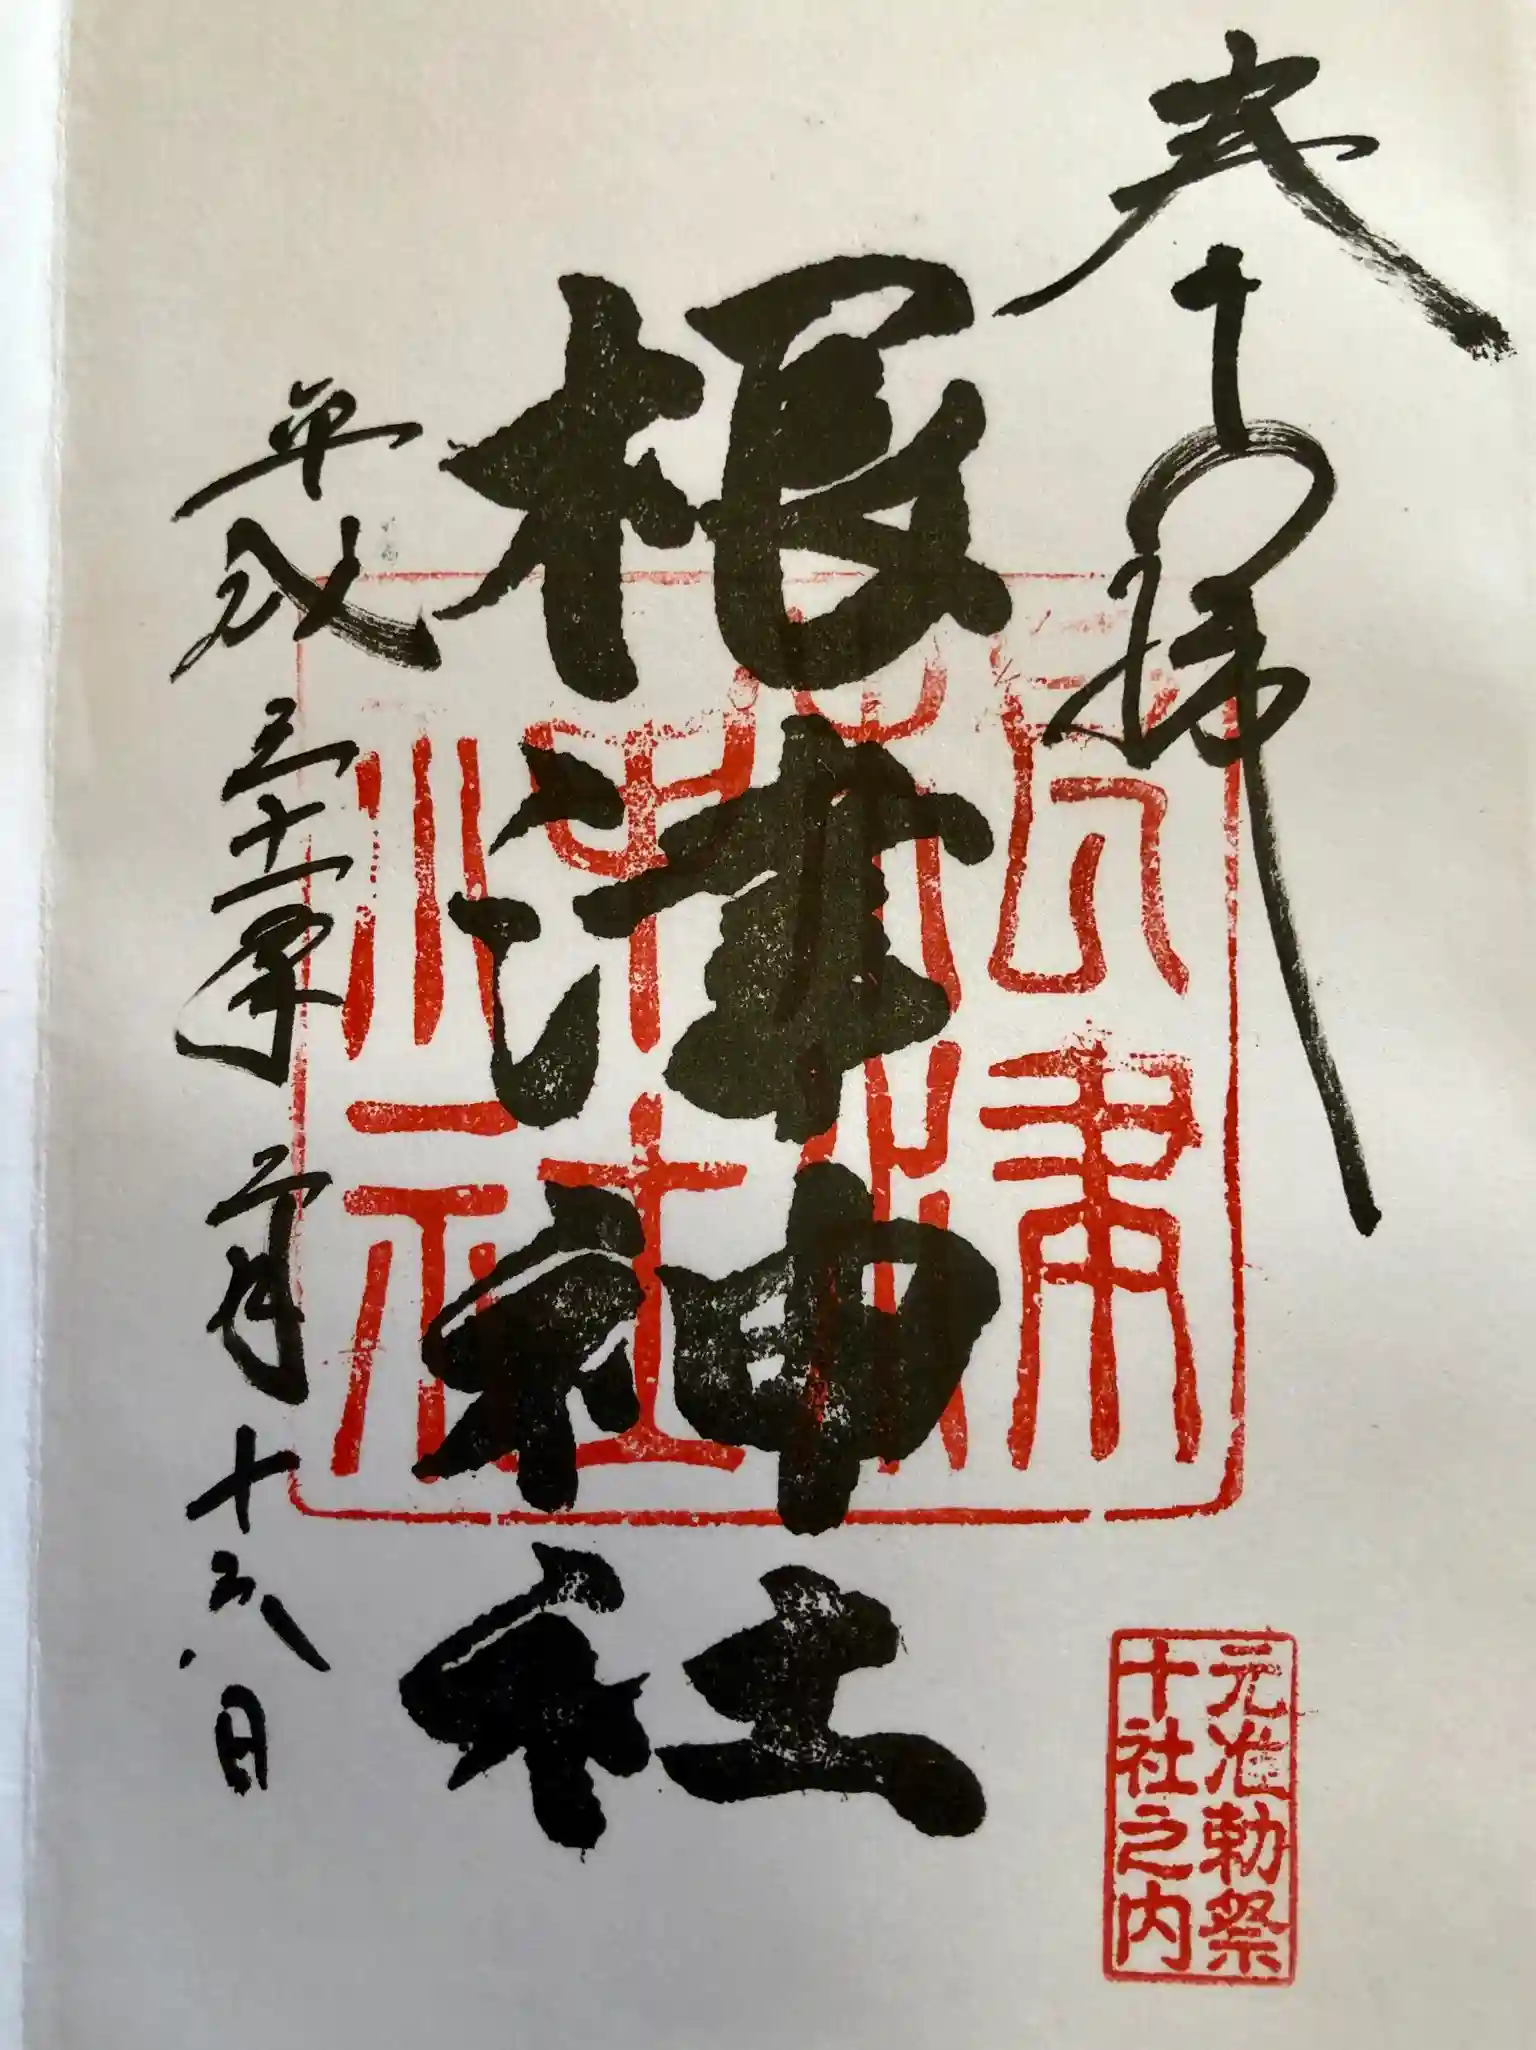 奉拝
根津神社
平成三十一年二月十六日
根津神社
元准勅祭
十社之内